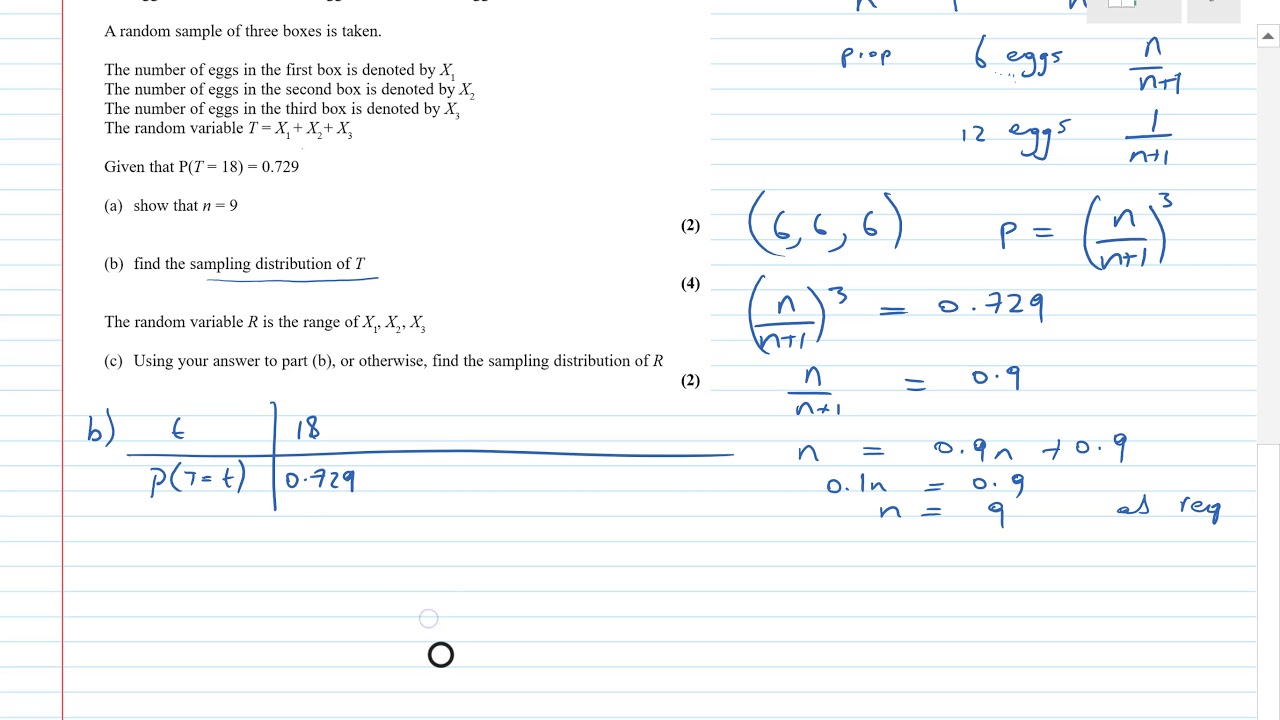 A random sample of three boxes is taken.
The number of eggs in the first box is denoted by X₁
The number of eggs in the second box is denoted by X₂
The number of eggs in the third box is denoted by X₃
The random variable T = X₁ + X₂ + X₃
Given that P(T = 18) = 0.729
(a) show that n = 9
(2)
(b) find the sampling distribution of T
(4)
The random variable R is the range of X₁, X₂, X₃
(c) Using your answer to part (b), or otherwise, find the sampling distribution of R
(2)
b) t 18
P(T = t) 0.729
prop 6 eggs n/(n+1)
12 eggs 1/(n+1)
(6, 6, 6) P = (n/(n+1))³
(n/(n+1))³ = 0.729
n/(n+1) = 0.9
n = 0.9n + 0.9
0.1n = 0.9
n = 9 as req